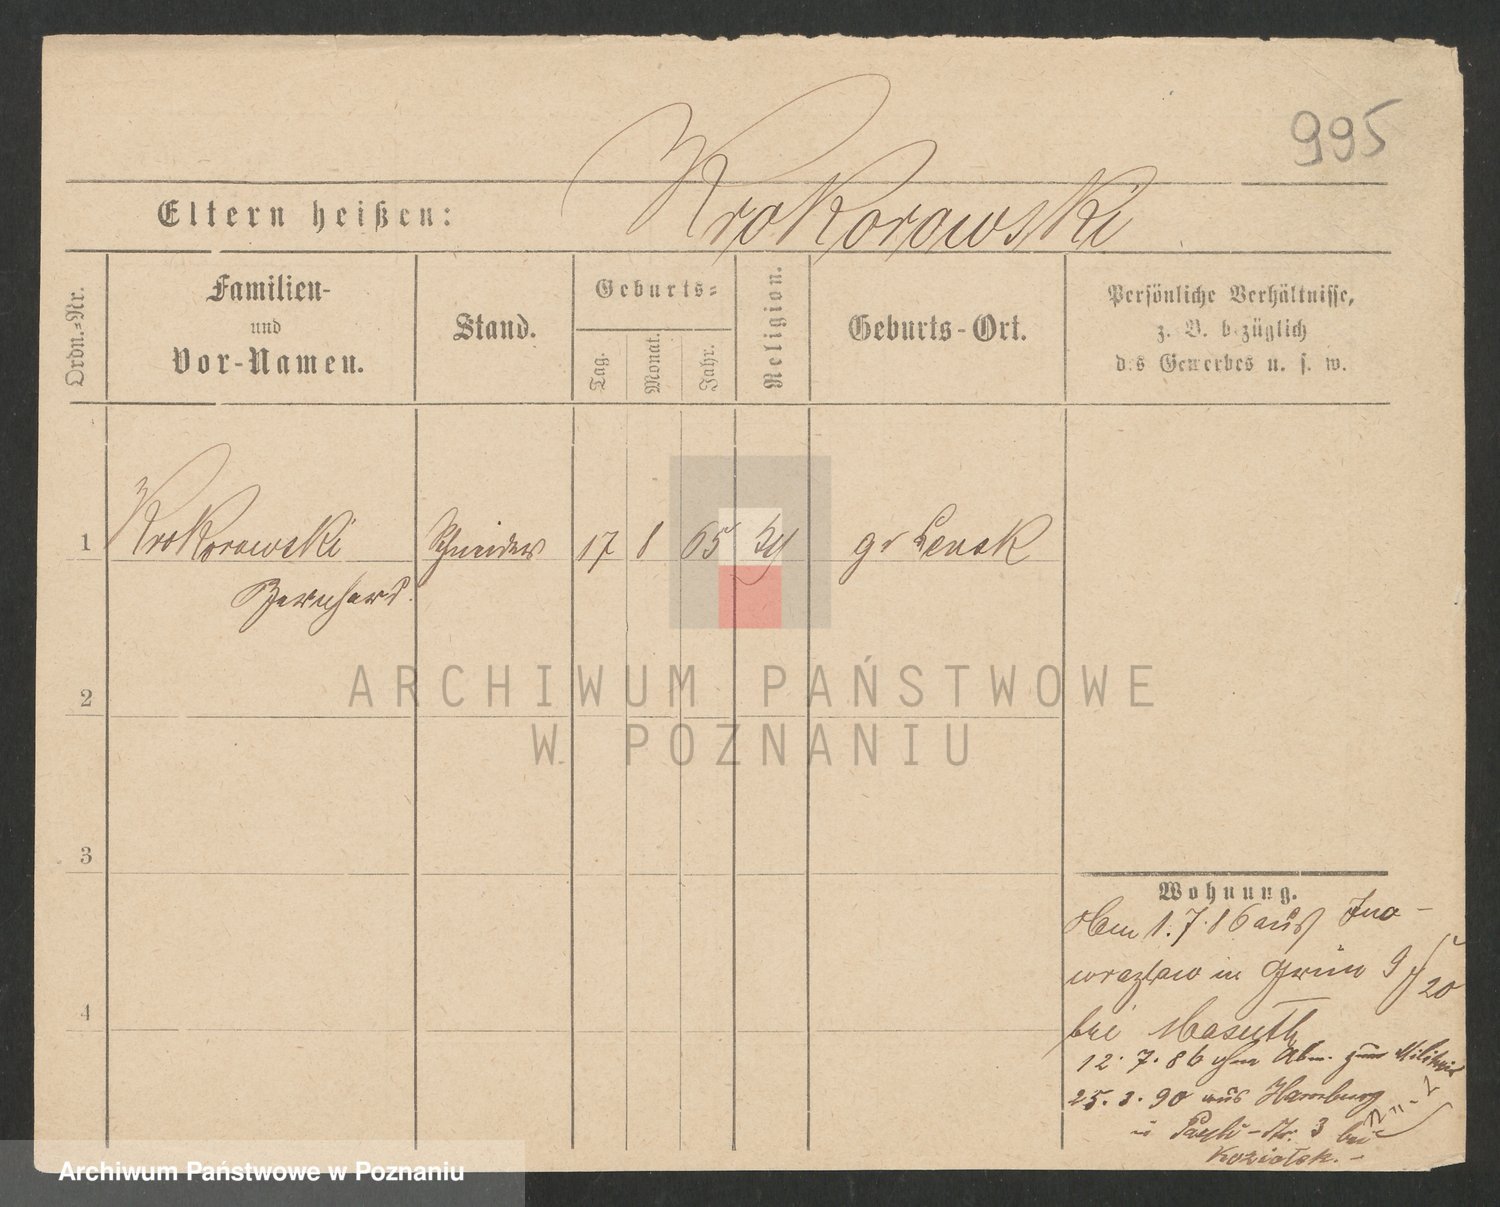 995
Eltern heißen: Krokorowski
Ordn.=Nr.
Familien-
und
Vor-Namen.
Stand.
Geburts=
Tag.
Monat.
Jahr.
Religion.
Geburts-Ort.
Persönliche Verhältnisse,
z. B. bezüglich
des Gewerbes u. s. w.
1 Krokorowski Schneider 17 8 65 gr Lenak
Bernhard
ARCHIWUM PAŃSTWOWE
W POZNANIU
2
3
4
Wohnung.
1.7.86 aus Ino-
wrazlaw in Grün 9 20
bei Masuth
12.7.86 ohn Abm. zum Militair
25.3.90 aus Hamburg
in Pauli-Str. 3 bei
Koziolek.-
Archiwum Państwowe w Poznaniu